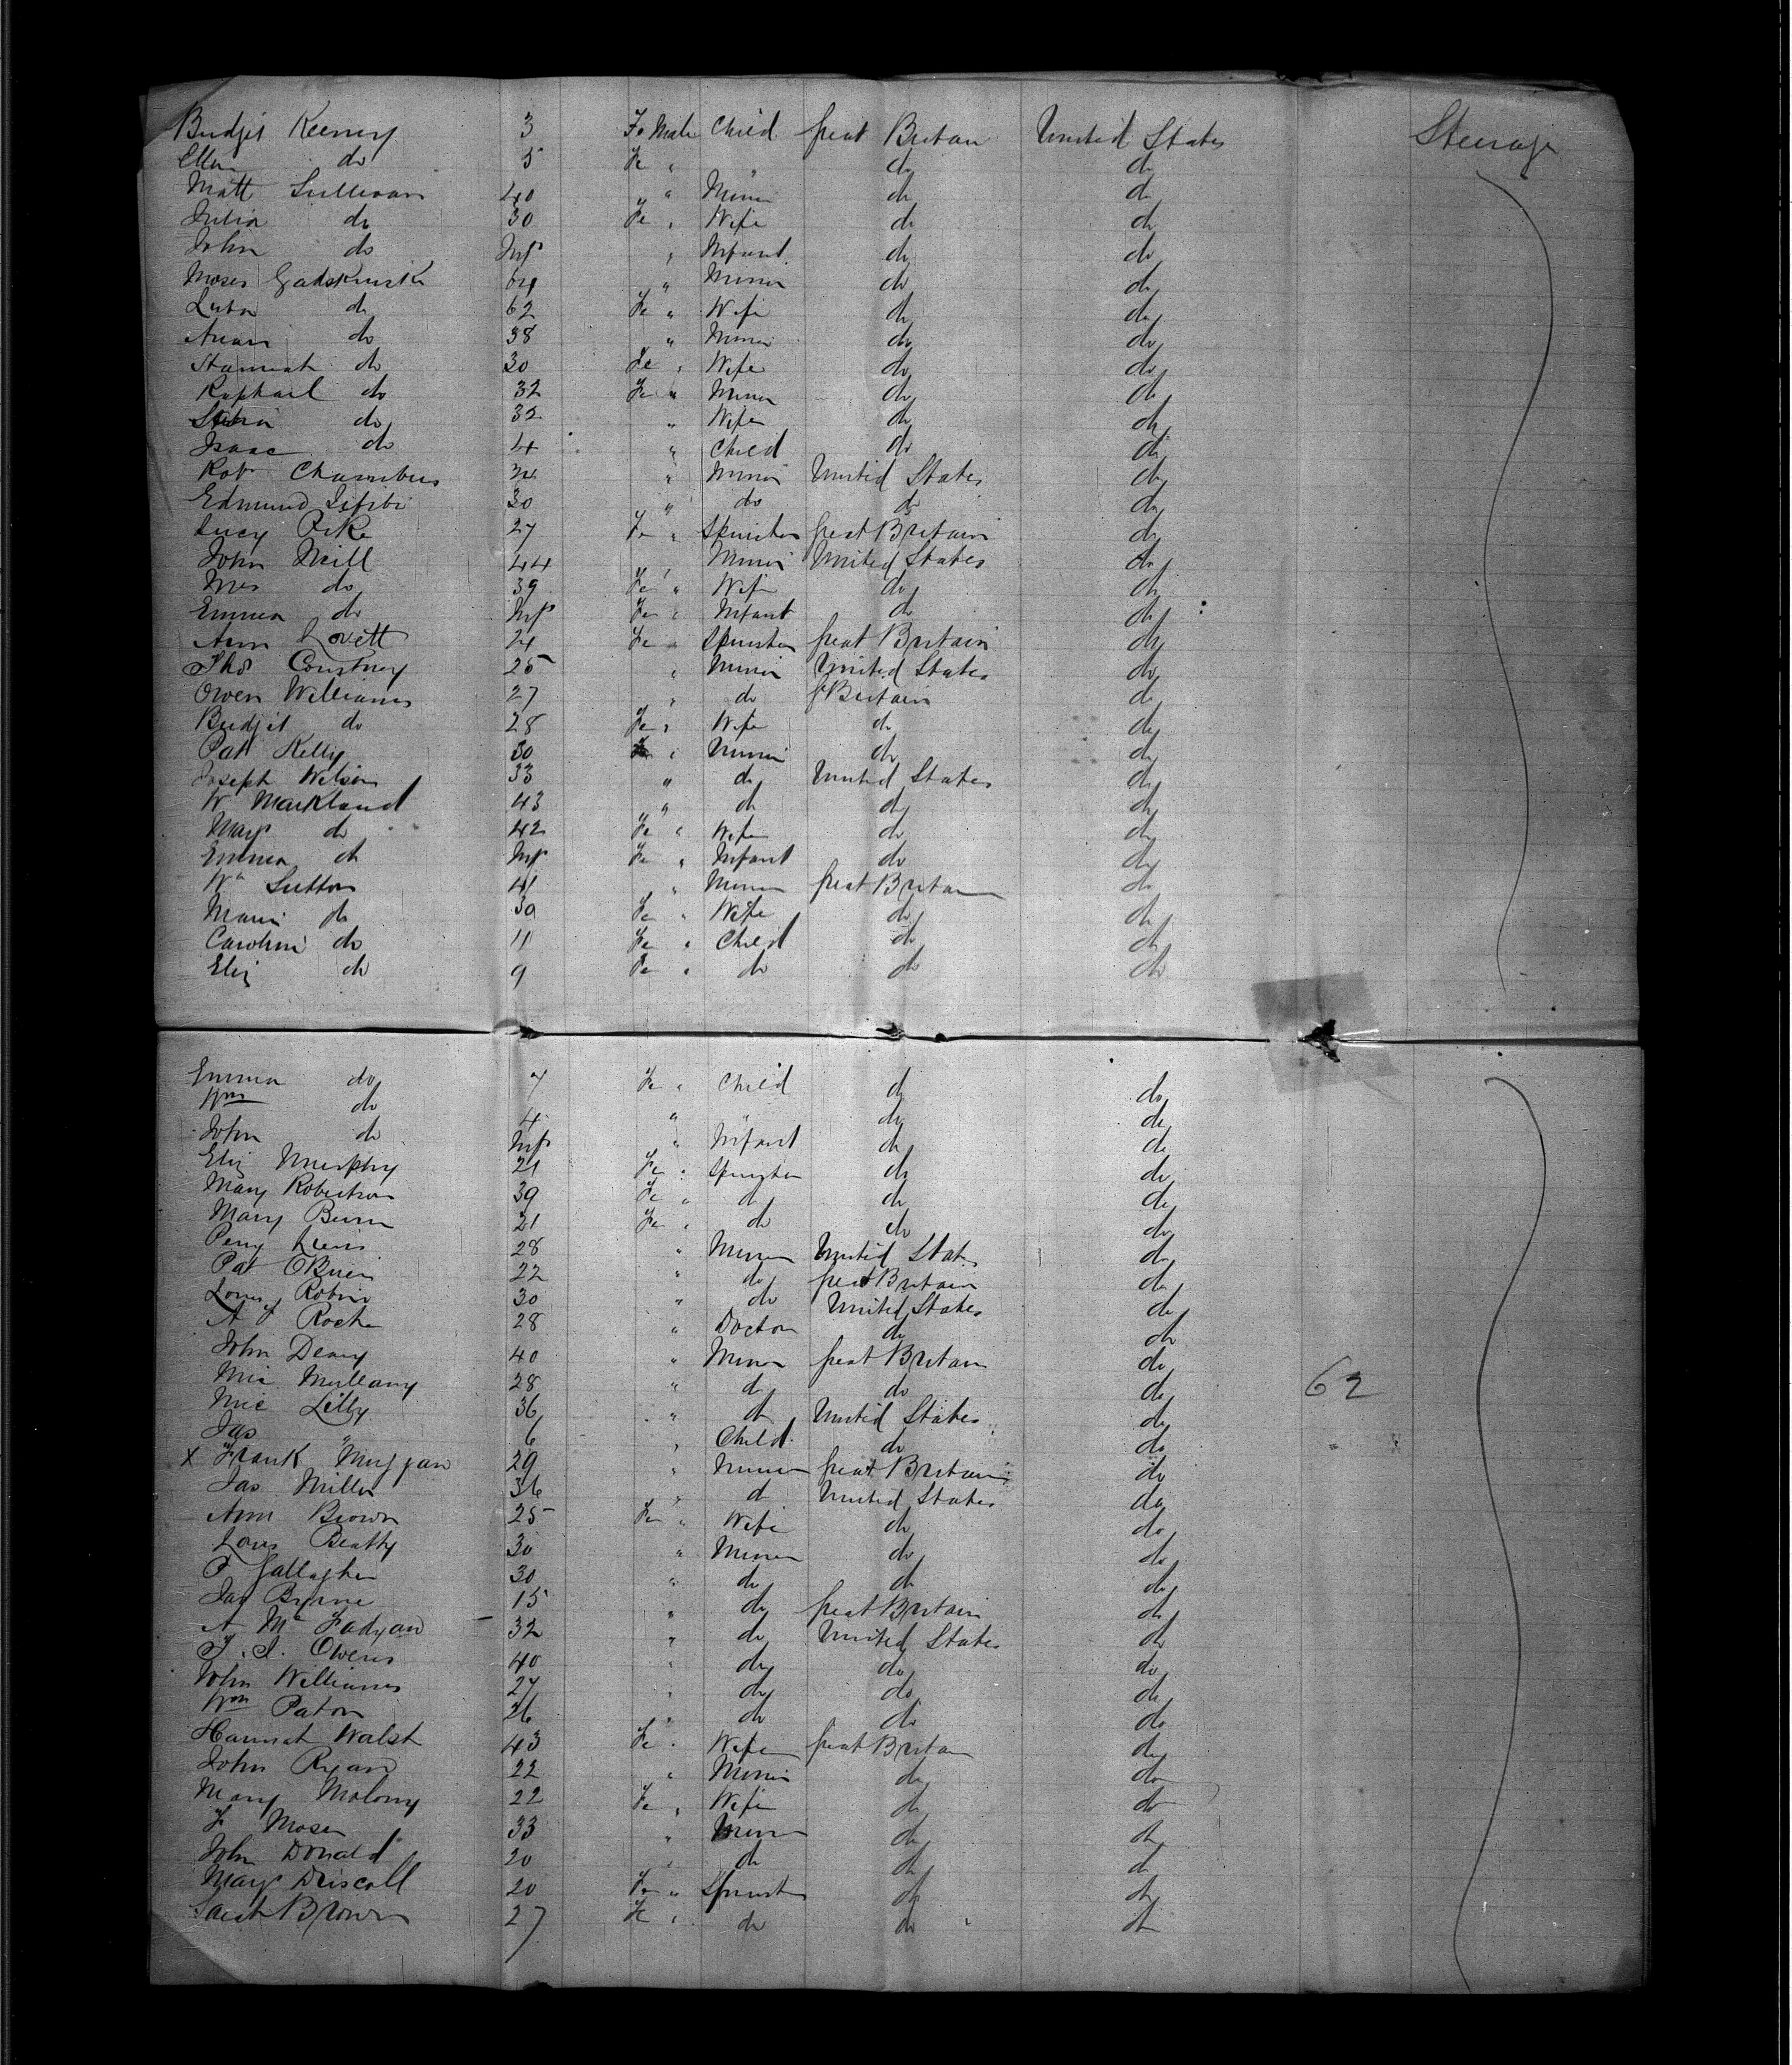 Bridget Keeney 3 Fe Male Child Great Britain United States Steerage
Ellen do 5 Fe " " do do
Matt Sullivan 40 " Miner do do
Julia do 30 Fe " Wife do do
John do Inft " Infant do do
Moses 64 " Miner do do
do 62 Fe " Wife do do
do 38 " Miner do do
do 30 Fe " Wife do do
Raphael do 32 Fe " Miner do do
do 32 " Wife do do
Isaac do 4 " Child do do
Robt Chambers " Miner United States do
Edmund 30 " do do do
Lucy Pike 27 Fe " Spinster Great Britain do
John Neill 44 " Miner United States do
Mrs do 39 Fe " Wife do do
Emma do Inft Fe " Infant do do
Ann Lovett 24 Fe " Spinster Great Britain do
Thos Courtney 25 " Miner United States do
Owen Williams 27 " do G Britain do
Bridgit do 28 Fe " Wife do do
Pat Kelly 30 " Miner do do
Joseph Wilson 33 " do United States do
W Markland 43 " do do do
Mary do 42 Fe " Wife do do
Emma do Inft Fe " Infant do do
Wm Sutton 41 " Miner Great Britain do
Maria do 30 Fe " Wife do do
Caroline do 11 Fe " Child do do
Eliz do 9 Fe " do do do
Emma do 7 Fe " Child do do
Wm do 4 " " do do
John do Inft " Infant do do
Eliz Murphy 21 Fe " Spinster do do
Mary Robertson 39 Fe " do do do
Mary Burn 21 Fe " do do do
Perry Lewis 28 " Miner United States do
Pat OBrien 22 " do Great Britain do
Louis Robin 30 " do United States do
A F Roche 28 " Doctor do do
John Deary 40 " Miner Great Britain do
Mic Mullany 28 " do do do 62
Mic Lilly 36 " do United States do
Jas " 6 " Child do do
x Frank Muggan 29 " Miner Great Britain do
Jas Miller 36 " do United States do
Ann Brown 25 Fe " Wife do do
Louis Beatty 30 " Miner do do
P Gallagher 30 " do do do
Jas Byrne 15 " do Great Britain do
A Mc Fadyan 32 " do United States do
T. J. Owens 40 " do do do
John Williams 27 " do do do
Wm Paton 26 " do do do
Hannah Walsh 43 Fe " Wife Great Britain do
John Ryan 22 " Miner do do
Mary Molony 22 Fe " Wife do do
F Moser 33 " Miner do do
John Donald 20 " do do do
Mary Driscoll 20 Fe " Spinster do do
Sarah Brown 27 Fe " do do do